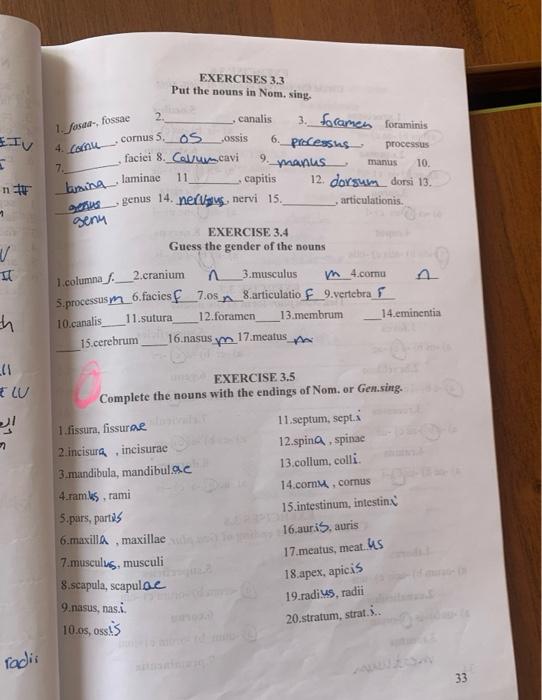 EXERCISES 3.3
Put the nouns in Nom. sing.
1. fossa-, fossae 2.________, canalis 3. foramen foraminis
4. cornu, cornus 5. os ,ossis 6. processus processus
7.________, faciei 8. Cavum cavi 9. manus, manus 10.
lamina, laminae 11________, capitis 12. dorsum dorsi 13.
genus, genus 14. nervus, nervi 15.________, articulationis.
genu
EXERCISE 3.4
Guess the gender of the nouns
1.columna f. 2.cranium n 3.musculus m 4.cornu n
5.processus m 6.facies f 7.os n 8.articulatio f 9.vertebra f
10.canalis____11.sutura____12.foramen____13.membrum____14.eminentia
____15.cerebrum____16.nasus m 17.meatus m
EXERCISE 3.5
Complete the nouns with the endings of Nom. or Gen.sing.
1.fissura, fissurae
2.incisura , incisurae
3.mandibula, mandibulae
4.ramus , rami
5.pars, partis
6.maxilla , maxillae
7.musculus, musculi
8.scapula, scapulae
9.nasus, nas.i
10.os, ossis
11.septum, sept.i
12.spina , spinae
13.collum, colli.
14.cornu , cornus
15.intestinum, intestini
16.auris, auris
17.meatus, meat.us
18.apex, apicis
19.radius, radii
20.stratum, strat.i..
radii
33